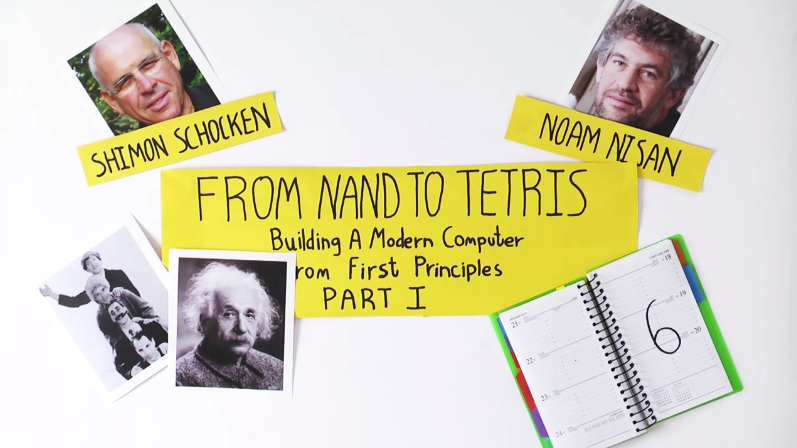 SHIMON SCHOCKEN
NOAM NISAN
FROM NAND TO TETRIS
Building A Modern Computer
rom First Principles
PART I
18
19
20
21
22
23
24
6